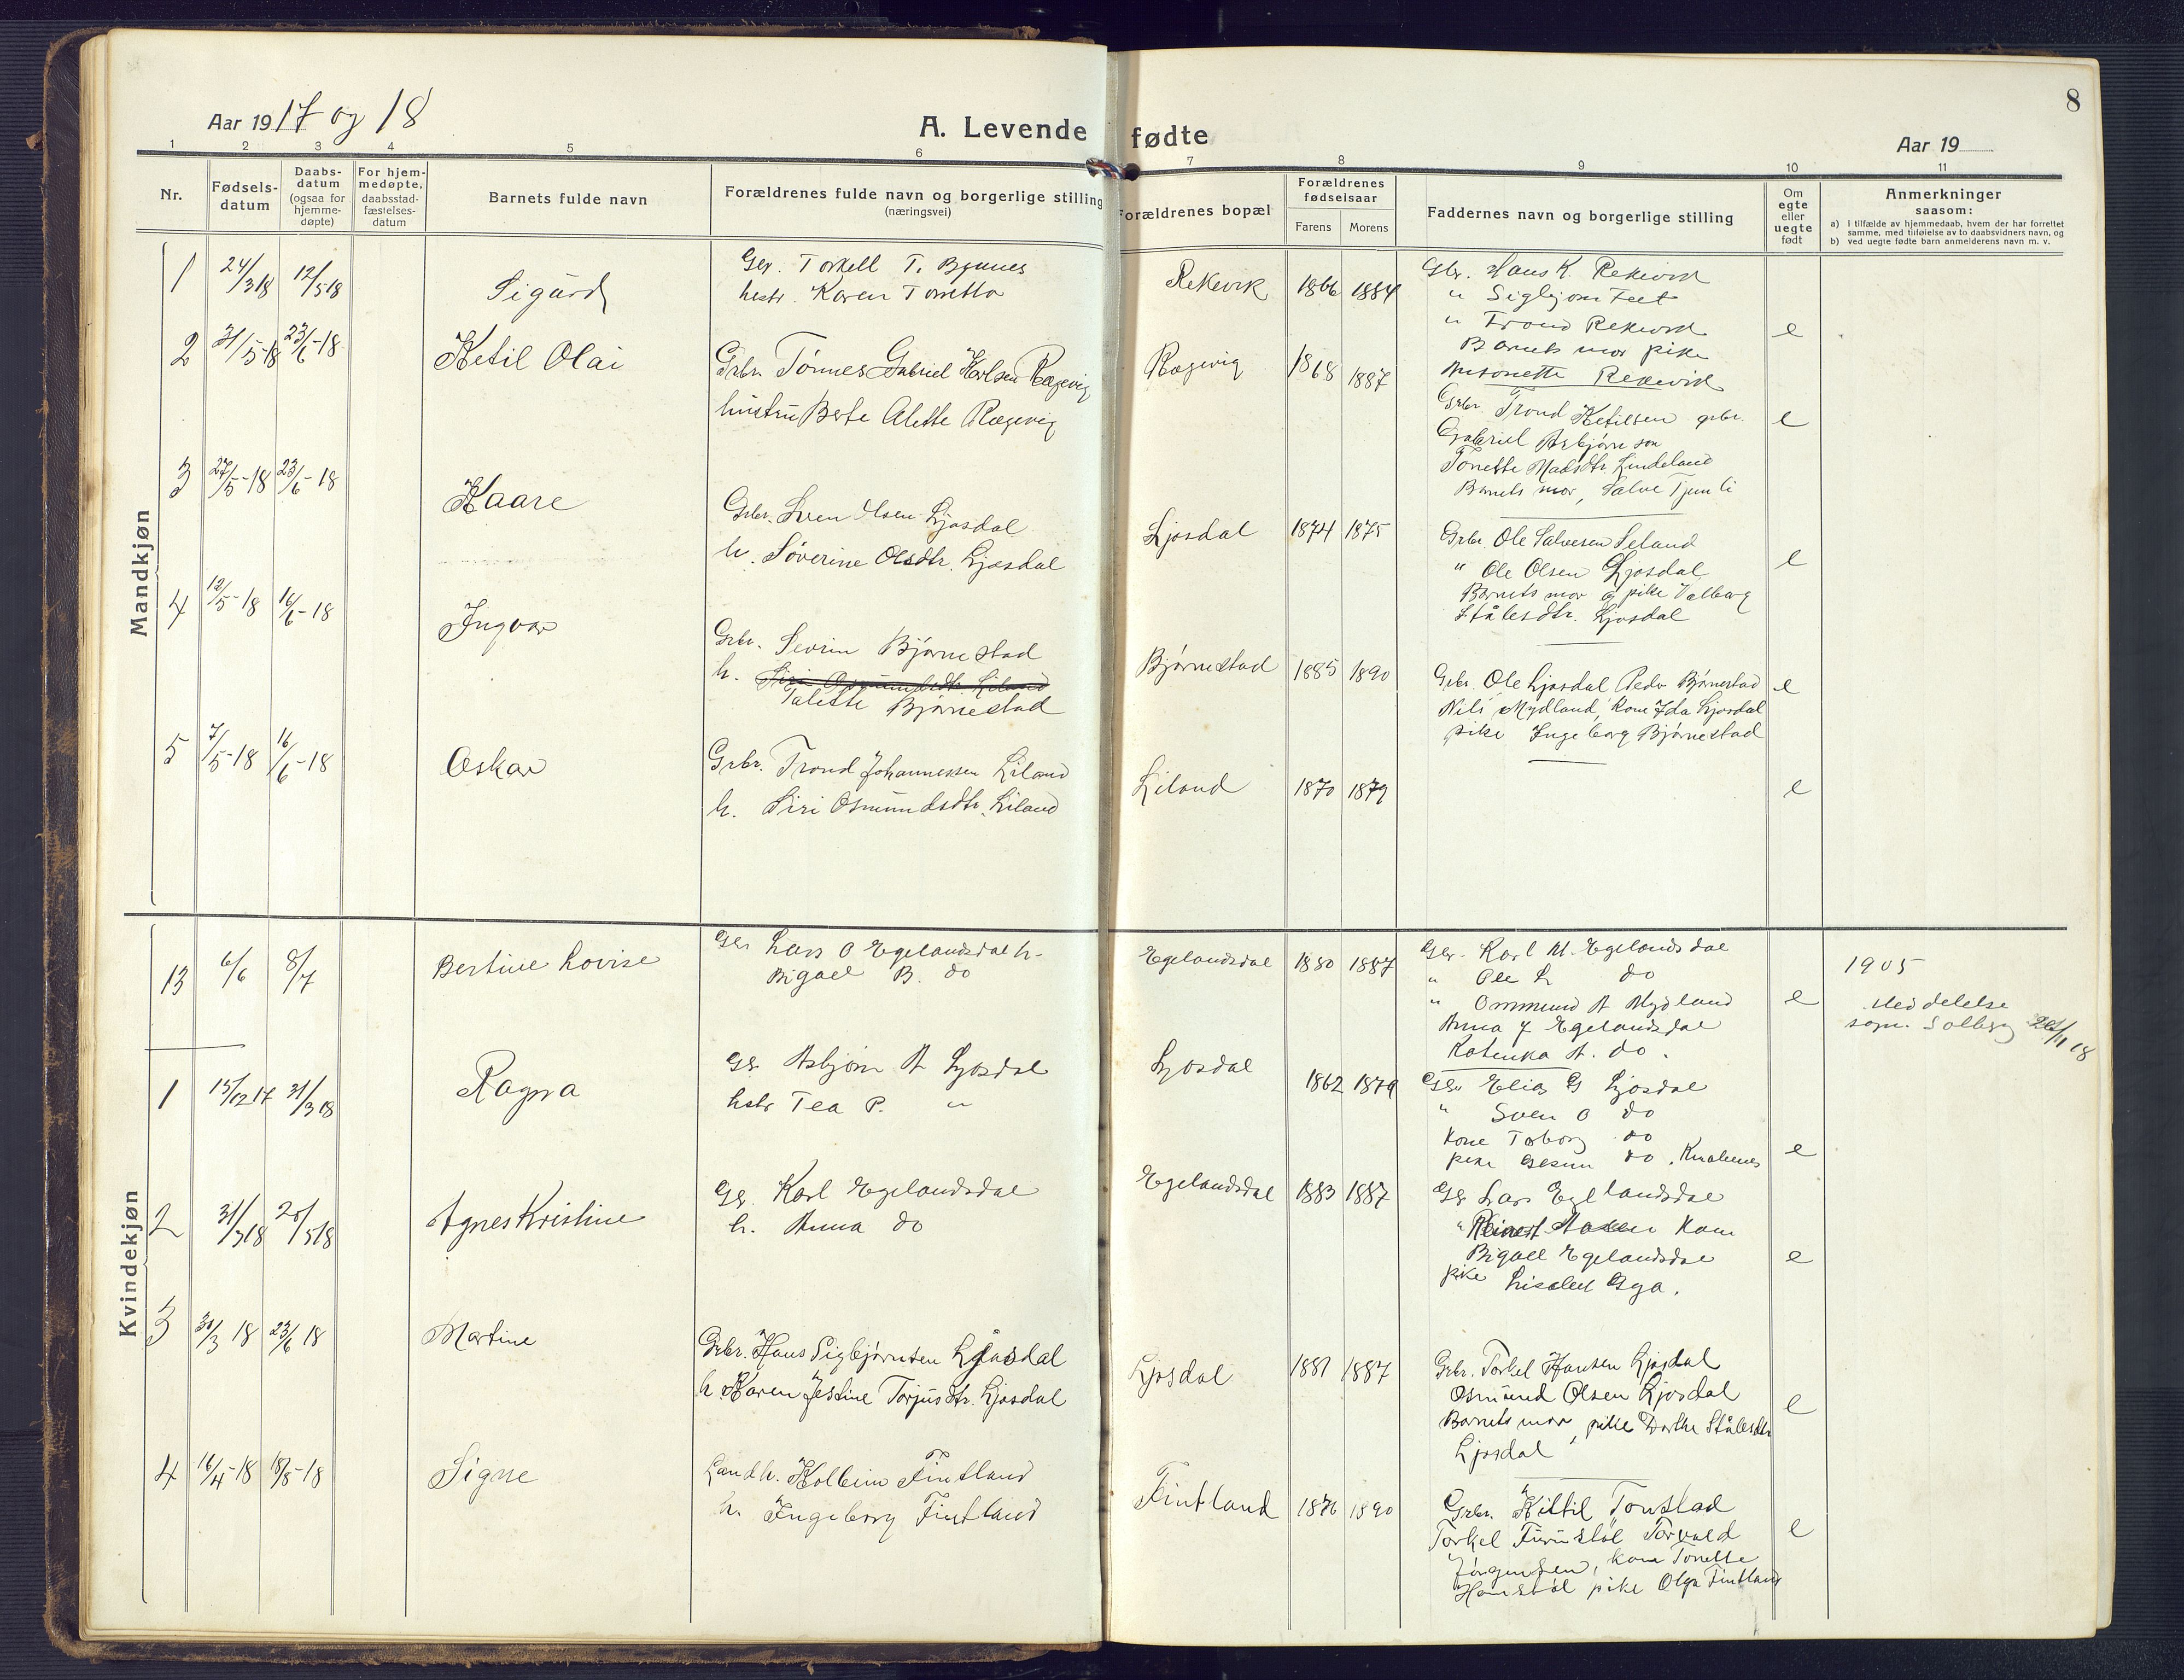 8
Aar 1917 og 18
A. Levende fødte
Aar 19
1 2 3 4 5 6 7 8 9 10 11
Nr.
Fødsels-
datum
Daabs-
datum
(ogsaa for
hjemme-
døpte)
For hjem-
medøpte,
daabsstad-
fæstelses-
datum
Barnets fulde navn
Forældrenes fulde navn og borgerlige stilling
(næringsvei)
Forældrenes bopæl
Forældrenes
fødselsaar
Farens Morens
Faddernes navn og borgerlige stilling
Om
egte
eller
uegte
født
Anmerkninger
saasom:
a) i tilfælde av hjemmedaab, hvem der har forrettet
samme, med tilføielse av to daabsvidners navn, og
b) ved uegte fødte barn anmelderens navn m. v.
Mandkjøn
1 24/3 18 12/5 18 Sigurd
Gbr. Torkell T.
hustr. Karen
Rekevik 1866 1884
Gbr. Hans K. Rekevik
" Sigbjørn Feet
" Trond Rekevik
Barnets mor pike
Rekevik
e
2 31/5-18 23/6-18 Ketil Olai
Grbr. Tønnes Gabriel Karlsen Rægevig
hustru Berte Alette Rægevig
Rægevig 1868 1887
Grbr. Trond Ketilsen grbr.
Gabriel Asbjørnson
Tonette Madsdtr. Lindeland
Barnets mor, Salve Tjomli
e
3 27/5-18 23/6-18 Kaare
Grbr. Sven Olsen Ljosdal
h. Søverine Olsdtr. Ljosdal
Ljosdal 1874 1875
Grbr. Ole Salvesen Seland
" Ole Olsen Ljosdal
Barnets mor og pike Valborg
Ståletsdtr. Ljosdal
e
4 12/5-18 16/6-18 Ingvar
Grbr. Sevrin Bjørnestad
h. Siri Osmundsdtr. Liland
Talette Bjørnestad
Bjørnestad 1885 1890
Grbr. Ole Ljosdal Peder Bjørnestad
Nils Mydland, kone Ida Ljosdal
pike Ingeborg Bjørnestad
e
5 7/5-18 16/6-18 Oskar
Grbr. Trond Johannessen Liland
h. Siri Osmundsdtr. Liland
Liland 1870 1879
e
Kvindekjøn
13 6/6 8/7 Bertine Lovise
Gbr Lars O Egelandsdal h.
Bigael B. do
Egelandsdal 1880 1887
Gbr. Karl M. Egelandsdal
" Ole L do
" Ommund A Mydland
Anna J Egelandsdal
Katinka A. do.
e
1905
Meddelelse
sogn. Solberg /11 18
1 15/12 17 31/3 18 Ragna
Gbr Asbjørn A Ljosdal
hstr Tea P. "
Ljosdal 1862 1879
Gbr Elias G Ljosdal
" Sven O do
Kone Taborg do
pike do,
e
2 31/3 18 20/5 18 Agnes Kristine
Gbr. Karl Egelandsdal
h. Anna do
Egelandsdal 1883 1887
Gbr Lars Egelandsdal
" Reinert Kone
Bigael Egelandsdal
pike
e
3 30/3 18 23/6 18 Martine
Grbr. Hans Sigbjørnsen Ljosdal
h. Karen Jestine Torjusdtr. Ljosdal
Ljosdal 1881 1887
Grbr. Torkel Hansen Ljosdal
Osmund Olsen Ljosdal
Barnets mor, pike Dorthe Ståletsdtr
Ljosdal
e
4 16/4-18 18/8-18 Signe
Landh. Kolbein Fintland
h. Ingeborg Fintland
Fintland 1876 1890
Grbr. Kittil Tonstad
Torkel Furustøl Torvald
Jørgensen, kone Tonette
Homstøl pike Olga Fintland
e